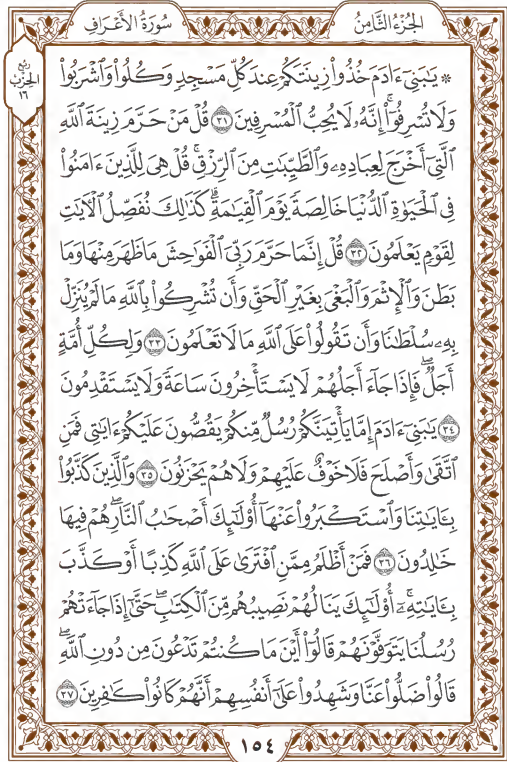 الجُزْءُ الثَّامِنُ
سُورَةُ الأَعْرَافِ
رُبع
الحِزْبِ
١٦
۞ يَٰبَنِىٓ ءَادَمَ خُذُواْ زِينَتَكُمْ عِندَ كُلِّ مَسْجِدٍ وَكُلُواْ وَٱشْرَبُواْ
وَلَا تُسْرِفُوٓاْۚ إِنَّهُۥ لَا يُحِبُّ ٱلْمُسْرِفِينَ ٣١ قُلْ مَنْ حَرَّمَ زِينَةَ ٱللَّهِ
ٱلَّتِىٓ أَخْرَجَ لِعِبَادِهِۦ وَٱلطَّيِّبَٰتِ مِنَ ٱلرِّزْقِۚ قُلْ هِىَ لِلَّذِينَ ءَامَنُواْ
فِى ٱلْحَيَوٰةِ ٱلدُّنْيَا خَالِصَةً يَوْمَ ٱلْقِيَٰمَةِۗ كَذَٰلِكَ نُفَصِّلُ ٱلْءَايَٰتِ
لِقَوْمٍ يَعْلَمُونَ ٣٢ قُلْ إِنَّمَا حَرَّمَ رَبِّىَ ٱلْفَوَٰحِشَ مَا ظَهَرَ مِنْهَا وَمَا
بَطَنَ وَٱلْإِثْمَ وَٱلْبَغْىَ بِغَيْرِ ٱلْحَقِّ وَأَن تُشْرِكُواْ بِٱللَّهِ مَا لَمْ يُنَزِّلْ
بِهِۦ سُلْطَٰنًا وَأَن تَقُولُواْ عَلَى ٱللَّهِ مَا لَا تَعْلَمُونَ ٣٣ وَلِكُلِّ أُمَّةٍ
أَجَلٌۖ فَإِذَا جَآءَ أَجَلُهُمْ لَا يَسْتَأْخِرُونَ سَاعَةً وَلَا يَسْتَقْدِمُونَ
٣٤ يَٰبَنِىٓ ءَادَمَ إِمَّا يَأْتِيَنَّكُمْ رُسُلٌ مِّنكُمْ يَقُصُّونَ عَلَيْكُمْ ءَايَٰتِى فَمَنِ
ٱتَّقَىٰ وَأَصْلَحَ فَلَا خَوْفٌ عَلَيْهِمْ وَلَا هُمْ يَحْزَنُونَ ٣٥ وَٱلَّذِينَ كَذَّبُواْ
بِـَٔايَٰتِنَا وَٱسْتَكْبَرُواْ عَنْهَآ أُوْلَٰٓئِكَ أَصْحَٰبُ ٱلنَّارِۖ هُمْ فِيهَا
خَٰلِدُونَ ٣٦ فَمَنْ أَظْلَمُ مِمَّنِ ٱفْتَرَىٰ عَلَى ٱللَّهِ كَذِبًا أَوْ كَذَّبَ
بِـَٔايَٰتِهِۦٓۚ أُوْلَٰٓئِكَ يَنَالُهُمْ نَصِيبُهُم مِّنَ ٱلْكِتَٰبِۖ حَتَّىٰٓ إِذَا جَآءَتْهُمْ
رُسُلُنَا يَتَوَفَّوْنَهُمْ قَالُوٓاْ أَيْنَ مَا كُنتُمْ تَدْعُونَ مِن دُونِ ٱللَّهِۖ
قَالُواْ ضَلُّواْ عَنَّا وَشَهِدُواْ عَلَىٰٓ أَنفُسِهِمْ أَنَّهُمْ كَانُواْ كَٰفِرِينَ ٣٧
١٥٤